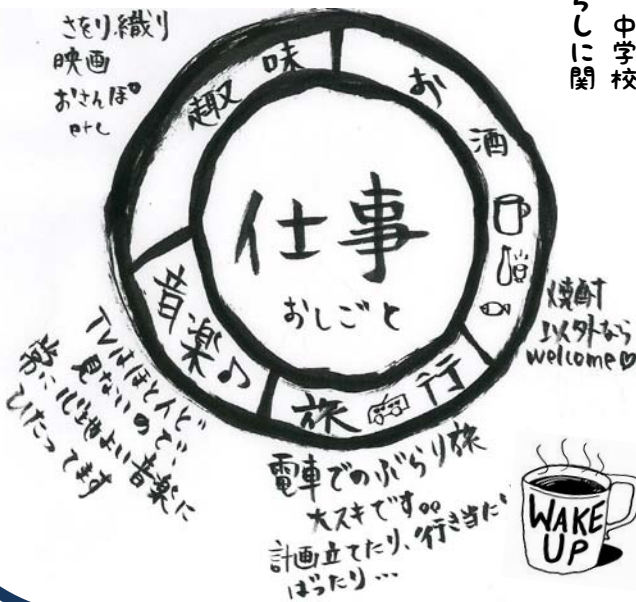 中学校
らしに関
さをり織り
映画
おさんぽ
etc
趣味
お酒
仕事
おしごと
音楽♪
旅行
焼酎
以外なら
welcome♡
TVはほとんど
見ないので、
常に心地よい音楽に
ひたってます
電車でのぶらり旅
大スキです。。
計画立てたり、行き当たり
ばったり…
WAKE
UP